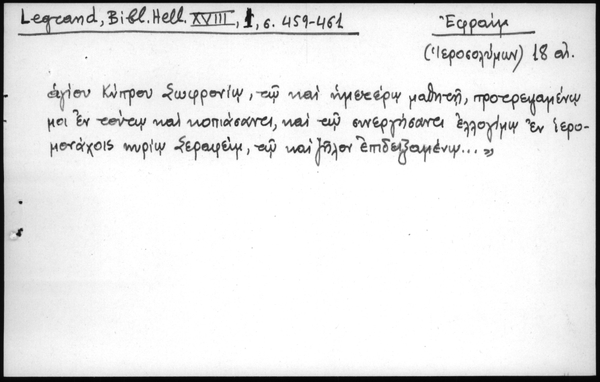 Legrand, Bibl. Hell. XVIII, 1, σ. 459-461
Ἐφραὶμ
(Ἱεροσολύμων) 18 αἰ.
ἁγίου Κύπρου Σωφρονίῳ, τῷ καὶ ἡμετέρῳ μαθητῇ, προτρεψαμένῳ
μοι ἐν τούτῳ καὶ κοπιάσαντι, καὶ τῷ συνεργήσαντι ἐλλογίμῳ ἐν ἱερο-
μονάχοις κυρίῳ Σεραφεὶμ, τῷ καὶ ζῆλον ἐπιδειξαμένῳ... »